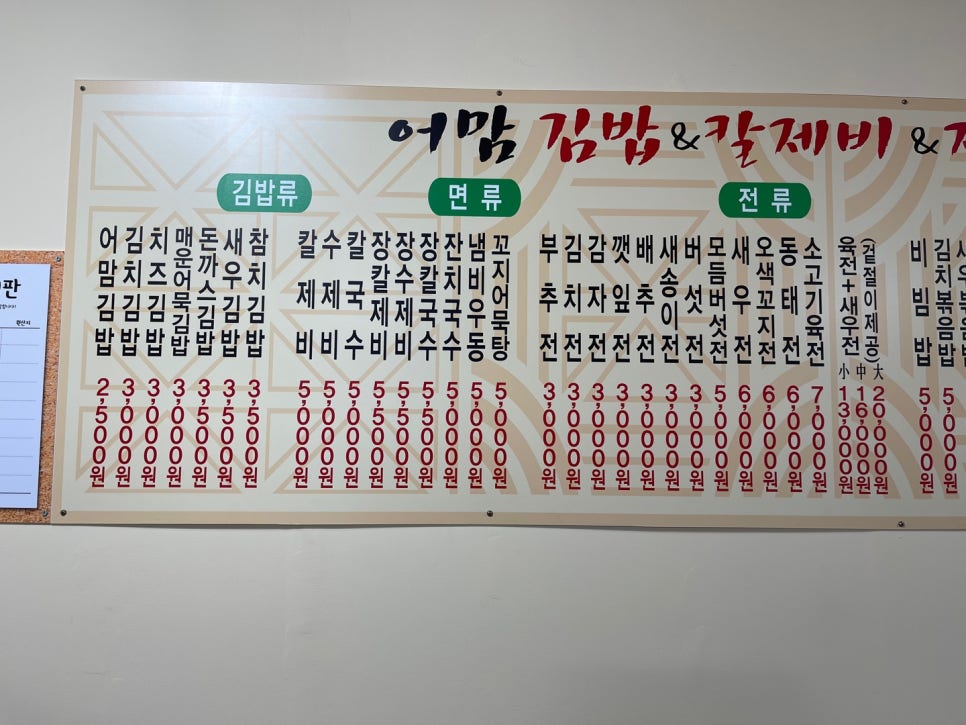 어맘 김밥 & 칼제비 &
김밥류
어맘김밥 2,500원
김치김밥 3,000원
치즈김밥 3,000원
매운어묵김밥 3,000원
돈까스김밥 3,500원
새우김밥 3,500원
참치김밥 3,500원
면류
칼제비 5,000원
수제비 5,000원
칼국수 5,000원
장칼제비 5,500원
장수제비 5,500원
장칼국수 5,500원
잔치국수 5,000원
냄비우동 5,000원
꼬지어묵탕 5,000원
전류
부추전 3,000원
김치전 3,000원
감자전 3,000원
깻잎전 3,000원
배추전 3,000원
새송이전 3,000원
버섯전 3,000원
모듬버섯전 5,000원
새우전 6,000원
오색꼬지전 6,000원
동태전 6,000원
소고기육전 7,000원
육전+새우전 (겉절이제공)
小 13,000원
中 16,000원
大 20,000원
비빔밥 5,000원
김치볶음밥 5,000원
판
원산지